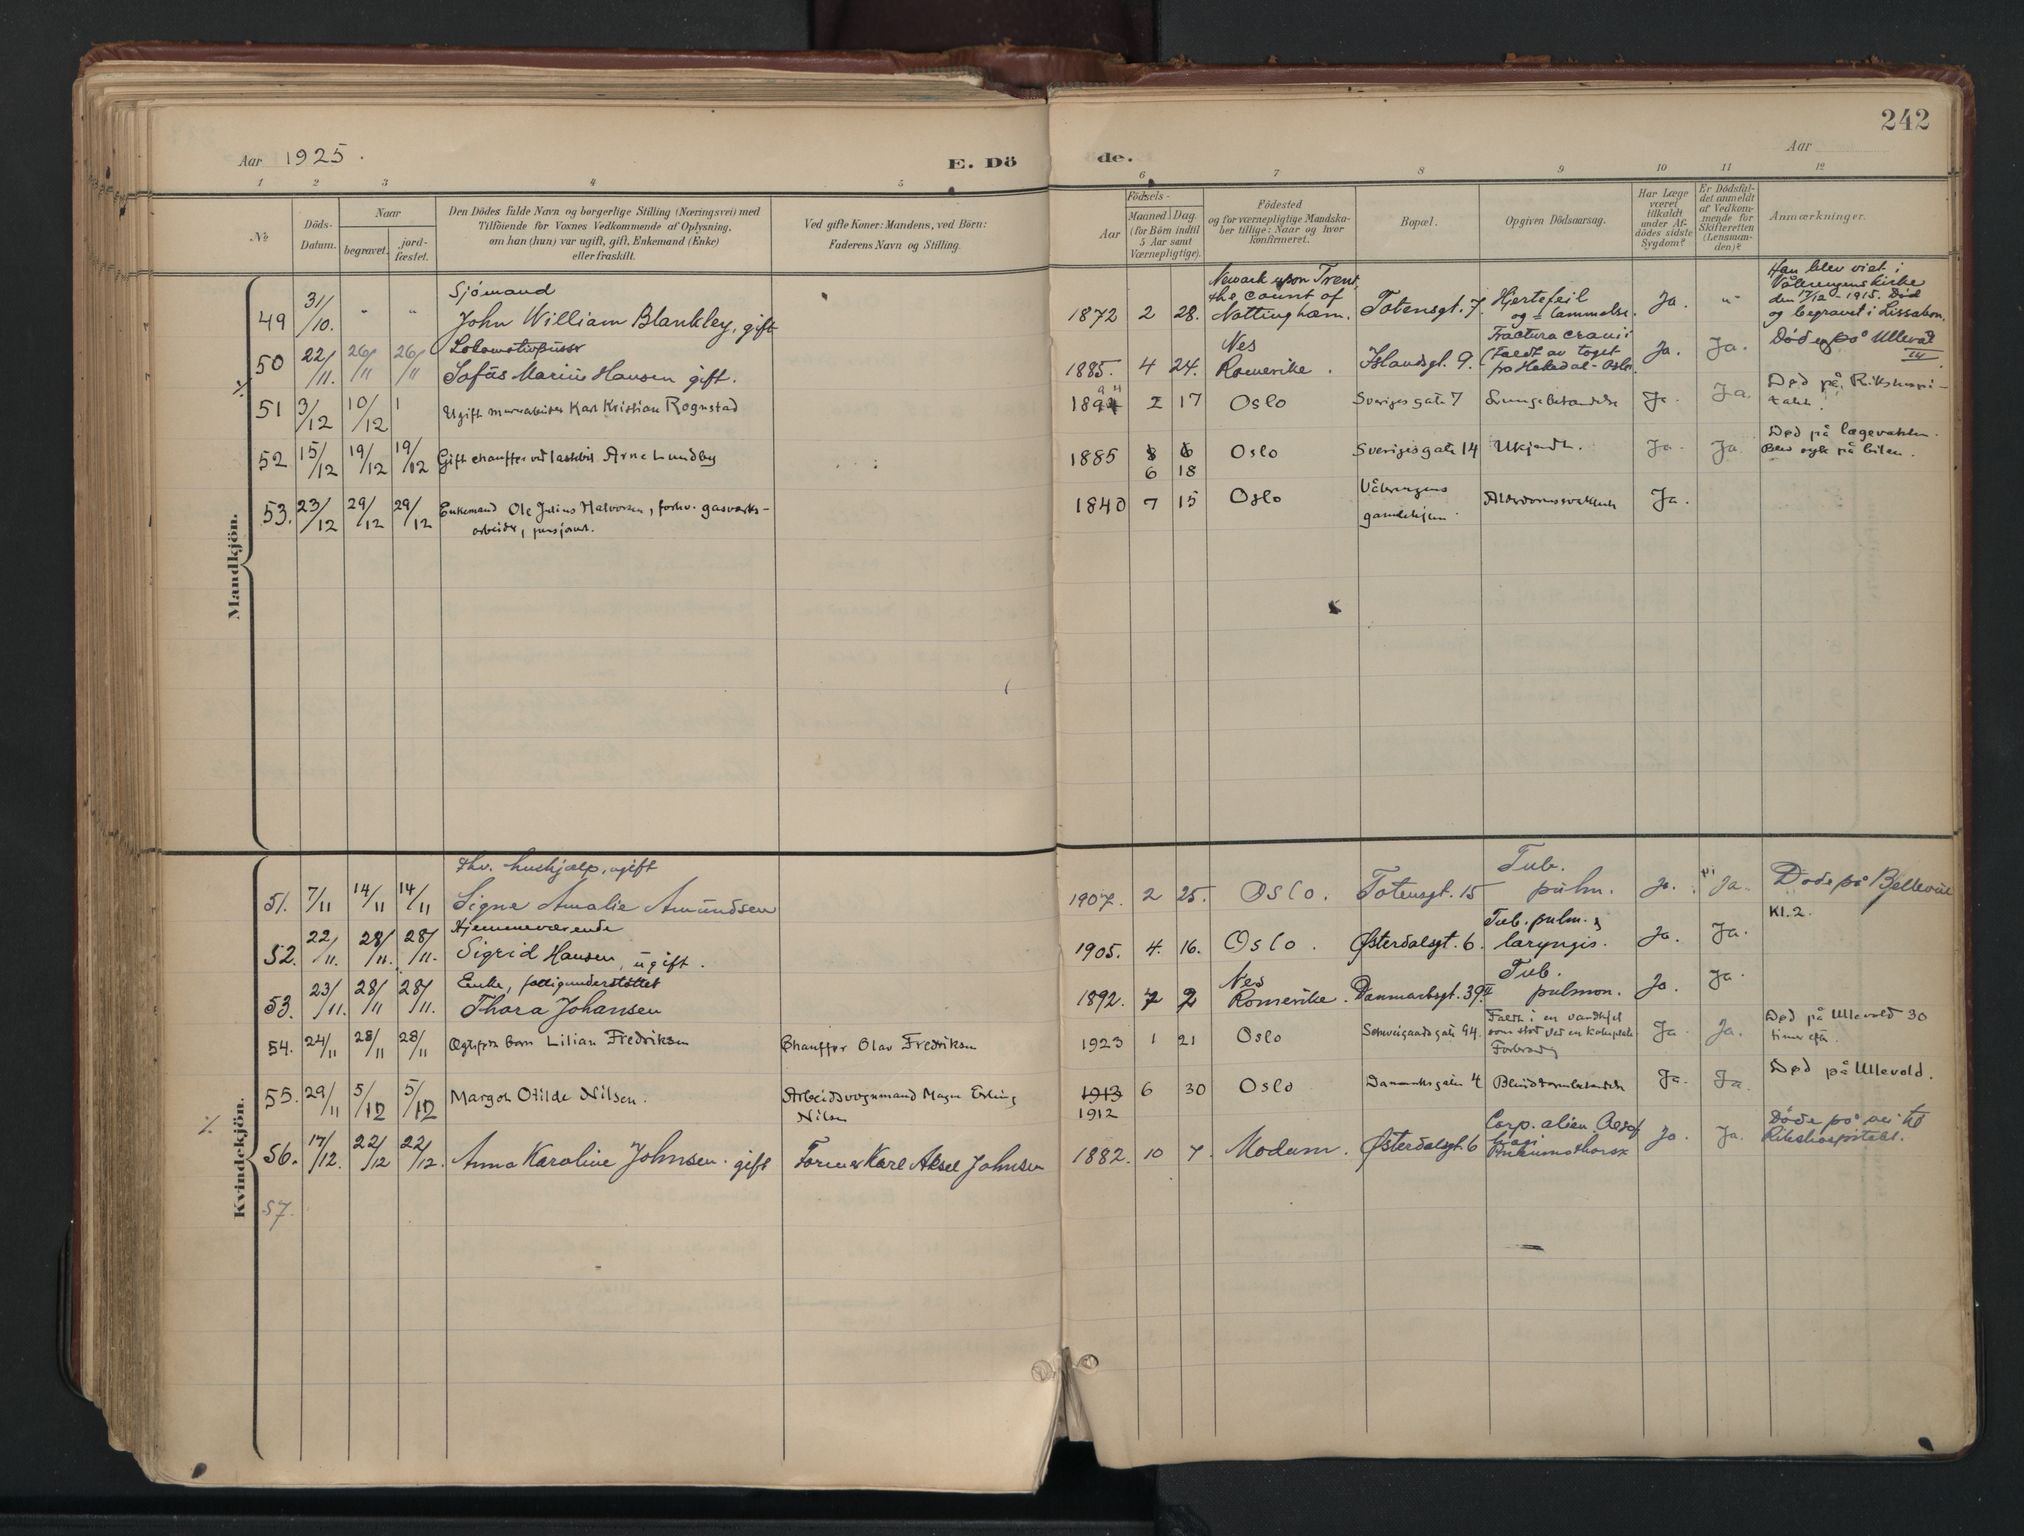 242
Aar 1925.
E. Døde.
Aar
1 2 3 4 5 6 7 8 9 10 11 12
No
Döds-Datum.
Naar
begravet.
jord-fæstet.
Den Dödes fulde Navn og borgerlige Stilling (Næringsvei) med
Tilföiende for Voxnes Vedkommende af Oplysning,
om han (hun) var ugift, gift, Enkemand (Enke)
eller fraskilt.
Ved gifte Koner: Mandens, ved Börn:
Faderens Navn og Stilling.
Födsels-
Aar
Maaned Dag.
(for Börn indtil
5 Aar samt
Værnepligtige).
Födested
og for værnepligtige Mandska-
ber tillige: Naar og hvor
konfirmeret.
Bopæl.
Opgiven Dödsaarsag.
Har Læge
været
tilkaldt
under Af-
dödes sidste
Sygdom?
Er Dödsfal-
det anmeldt
af Vedkom-
mende for
Skifteretten
(Lensman-
den)?
Anmærkninger.
Mandkjön.
49 31/10. " " Sjömand
John William Blankley, gift
1872 2 28. Newark upon Trent,
the count of
Nottingham. Totensgt. 7. Hjertefeil
og = lammelse. Ja. " Han blev viet i
Vålerengens kirke
den 17/12 - 1915. Død
og begravet i Lissabon.
50 22/11. 26/11 26/11 Lokomotivpusser
Sofus Marius Hansen gift.
1885. 4 24. Nes
Romerike. Islandsgt. 9. Fractura cranii
(Faldt av toget
fra Hakadal-Oslo. Ja. Ja. Døde på Ullevål
51 3/12 10/12 1 Ugift murarbeider Karl Kristian Rognstad
2 17 Oslo Sverigesgate 7 Lungebetændelse Ja. Ja. Død på Rikshospi-
talet.
52 15/12 19/12 19/12 Gift chauffør ved lastebil Arne Lundby
1885 8 6
6 18 Oslo Sverigesgate 14 Ukjendt. Ja. Ja. Død på lægevakten.
Blev syk på bilen.
53. 23/12 29/12 29/12 Enkemand Ole Julius Halvorsen, forhv. gasverks-
arbeider, pensjonist.
1840 7 15 Oslo Vålerengens
gamlehjem. Alderdomssvakhet Ja.
Kvindekjön.
51. 7/11 14/11 14/11 fhv. hushjælp, ugift
Signe Amalie Amundsen
1907. 2 25. Oslo. Totensgt. 15 Tub.
pulm. Ja. Ja. Døde på Bellevue
Kl. 2.
52. 22/11. 28/11. 28/11. Hjemmeværende
Sigrid Hansen, ugift.
1905. 4. 16. Oslo. Østerdalsgt. 6. Tub. pulm. &
laryngis. Ja. Ja.
53. 23/11. 28/11 28/11. Enke, fattigunderstøttet
Thora Johansen
1892. 7 2 Nes
Romerike. Danmarksgt. 39 II Tub.
pulmon. Ja. Ja
54. 24/11 28/11 28/11 Ægtefødt barn Lilian Fredriksen Chauffør Olav Fredriksen
1923 1 21 Oslo Schweigaardsgate 94. Faldt i en vandkjel
som stod ved en kokeplate
Forbrændt Ja. Ja. Død på Ullevold 30
timer efter.
55. 29/11 5/12 5/12 Margot Otilde Nilsen. Arbeidsvognmand Magne Erling
Nilsen
1913
1912 6 30 Oslo Danmarksgaten 4 Blindtarmbetændelse Ja. Ja. Død på Ullevold.
56. 17/12. 22/12 22/12. Anna Karoline Johnsen. gift Former Karl Aksel Johnsen
1882. 10 7. Modum. Østerdalsgt. 6 Corp. alien. Oesof
hagi
Pneumothorax Ja. Ja. Døde på vei til
Rikshospitalet.
57.